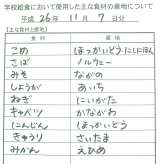 学校給食において使用した主な食材の産地について
平成 26年 11月 7日分
【主な食材と産地】
食材 産地
こめ ほっかいどう
さば ノルウェー
みそ ながの
しょうが あいち
ねぎ にいがた
キャベツ かながわ
にんじん ほっかいどう
きゅうり さいたま
みかん えひめ